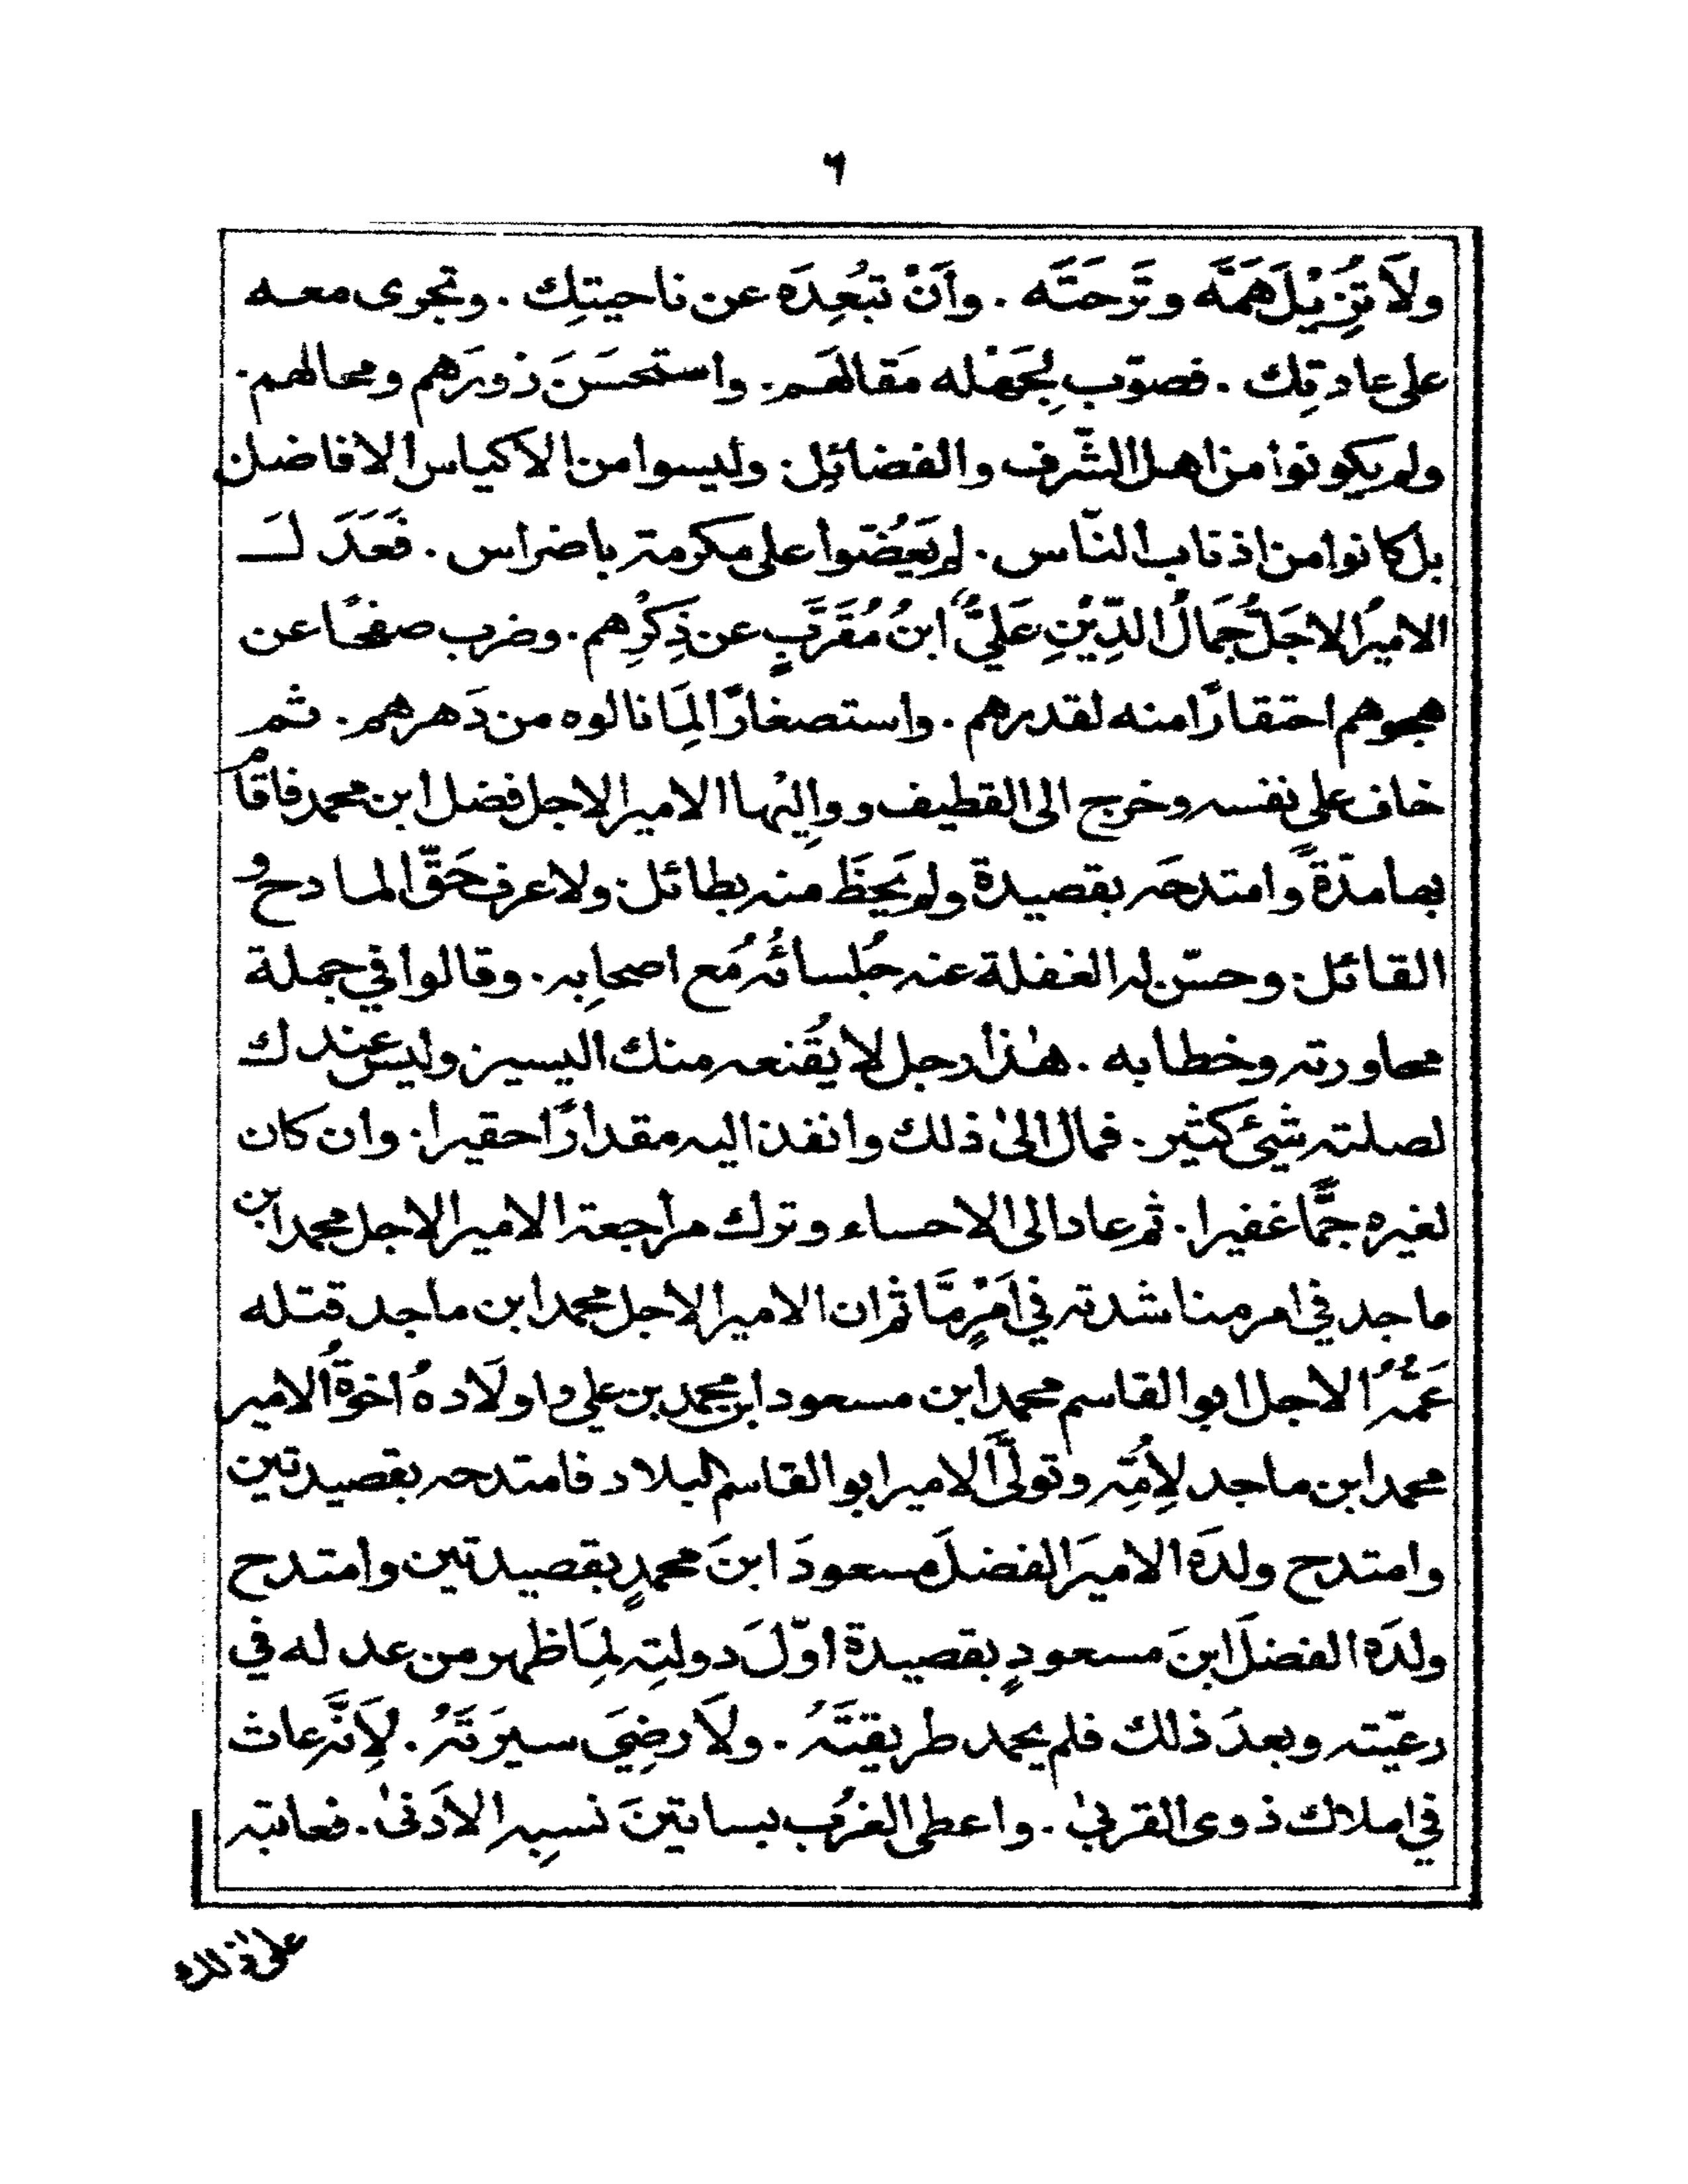 ٦
ولَا تُزِيْلَ هَمَّه وتَرَحَتَه . وأَنْ تُبْعِدَه عن ناحيتِك . وتجرى معه
على عادتِك . فصوّب لِجَهْله مَقالَهم . واستحسَنَ زورَهم ومحالهم .
ولم يكونوا من اهل الشّرف والفضائِل . وليسوا من الاكياس الافاضل
بل كانوا من اذناب النّاس . لم يَعُضّوا على مكرمة باضراس . فَعَدَلَ
الاميرُ الاجَلُّ جَمَالُ الدِّيْنِ عَلِيُّ ابنُ مُقَرَّبٍ عن ذِكْرِهم . وضرب صفحًا عن
هجوهم احتقارًا منه لقدرهم . واستصغارًا لِمَا نالوه من دَهرهم . ثم
خاف على نفسه وخرج الى القطيف ووالِيْها الامير الاجل فضل ابن محمد فاقام
بها مدّةً وامتدحَه بقصيدة ولم يَحْظَ منه بطائل . ولا عرف حَقّ المادح و
القائل . وحسّن له الغفلة عنه جُلسائُه مَع اصحابِه . وقالوا في جملة
محاورته وخطابه . هٰذا رجل لا يُقنعه منك اليسير وليس عندك
لصلته شيئ كثير . فمال الىٰ ذلك وانفذ اليه مقدارًا حقيرا . وان كان
لغيره جمًّا غفيرا . ثم عاد الى الاحساء وترك مراجعة الامير الاجل محمد ابن
ماجد في امر مناشدته في اَمْرٍ مَّا ثم ان الامير الاجل محمد ابن ماجد قتله
عَمُّهُ الاجل ابو القاسم محمد ابن مسعود ابن محمد بن علي واولَاده اخوةُ الامير
محمد ابن ماجد لِأُمِّه وتولَّى الامير ابو القاسم البلاد فامتدحه بقصيدتين
وامتدح ولدَه الاميرَ الفضلَ مسعودَ ابنَ محمدٍ بقصيدتين وامتدح
ولدَه الفضلَ ابنَ مسعودٍ بقصيدة اوّلَ دولتِه لِمَا ظهر من عدله في
رعيّته وبعدَ ذلك فلم يحمد طريقتَهُ . ولَا رضِيَ سيرَتَهُ . لِأَنَّه عاث
في املاك ذوى القربىٰ . واعطى الغرُب بساتينَ نسبِه الأدَنىٰ . فعاتبه
على ذلك